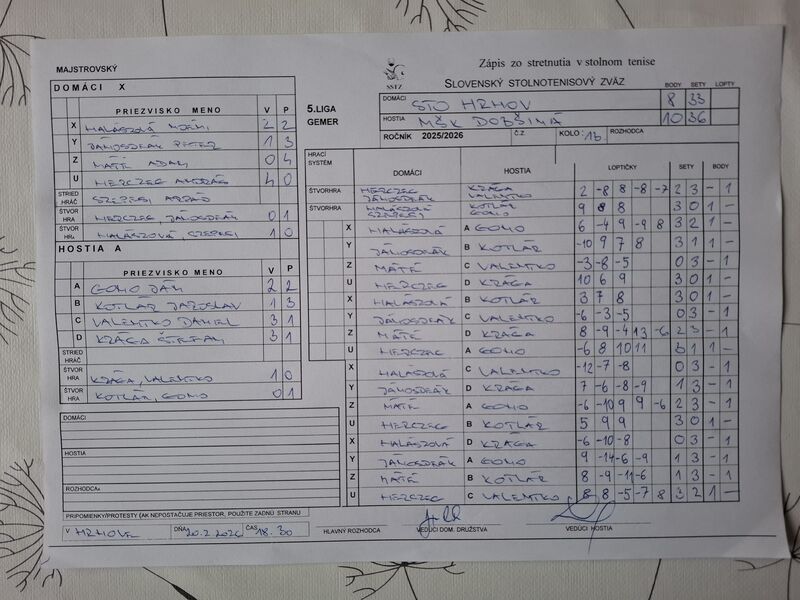 MAJSTROVSKÝ
Zápis zo stretnutia v stolnom tenise
SSTZ
SLOVENSKÝ STOLNOTENISOVÝ ZVÄZ
BODY SETY LOPTY
DOMÁCI X
5.LIGA GEMER
DOMÁCI STO HRHOV 8 33
HOSTIA MŠK DOBŠINÁ 10 36
ROČNÍK 2025/2026 Č.Z KOLO: 13 ROZHODCA
PRIEZVISKO MENO V P
X HALÁSZOVÁ NOÉMI 2 2
Y JÁNOSDEÁK PETER 1 3
Z MÁTÉ ADAM 0 4
U HERCZEG ANDRÁS 4 0
STRIED HRÁČ SZEPESI ARPÁD
ŠTVOR HRA HERCZEG, JÁNOSDEÁK 0 1
ŠTVOR HRA HALÁSZOVÁ, SZEPESI 1 0
HOSTIA A
PRIEZVISKO MENO V P
A GOMO JÁN 2 2
B KOTLÁR JAROSLAV 1 3
C VALENTKO DANIEL 3 1
D KRÁGA ŠTEFAN 3 1
STRIED HRÁČ
ŠTVOR HRA KRÁGA, VALENTKO 1 0
ŠTVOR HRA KOTLÁR, GOMO 0 1
HRACÍ SYSTÉM DOMÁCI HOSTIA LOPTIČKY SETY BODY
ŠTVORHRA HERCZEG JÁNOSDEÁK KRÁGA VALENTKO 2 -8 8 -8 -7 2 3 - 1
ŠTVORHRA HALÁSZOVÁ SZEPESI KOTLÁR GOMO 9 8 8 3 0 1 -
X HALÁSZOVÁ A GOMO 6 -4 9 -9 8 3 2 1 -
Y JÁNOSDEÁK B KOTLÁR -10 9 7 8 3 1 1 -
Z MÁTÉ C VALENTKO -3 -8 -5 0 3 - 1
U HERCZEG D KRÁGA 10 6 9 3 0 1 -
X HALÁSZOVÁ B KOTLÁR 3 7 8 3 0 1 -
Y JÁNOSDEÁK C VALENTKO -6 -3 -5 0 3 - 1
Z MÁTÉ D KRÁGA 8 -9 -4 13 -6 2 3 - 1
U HERCZEG A GOMO -6 8 10 11 3 1 1 -
X HALÁSZOVÁ C VALENTKO -12 -7 -8 0 3 - 1
Y JÁNOSDEÁK D KRÁGA 7 -6 -8 -9 1 3 - 1
Z MÁTÉ A GOMO -6 -10 9 9 -6 2 3 - 1
U HERCZEG B KOTLÁR 5 9 9 3 0 1 -
X HALÁSZOVÁ D KRÁGA -6 -10 -8 0 3 - 1
Y JÁNOSDEÁK A GOMO 9 -14 -6 -9 1 3 - 1
Z MÁTÉ B KOTLÁR 8 -9 -11 -6 1 3 - 1
U HERCZEG C VALENTKO 8 8 -5 -7 8 3 2 1 -
DOMÁCI:
HOSTIA:
ROZHODCA:
PRIPOMIENKY/PROTESTY (AK NEPOSTAČUJE PRIESTOR, POUŽITE ZADNÚ STRANU
V HRHOVE DŇA 20.2.2026 ČAS 18.30
HLAVNÝ ROZHODCA VEDÚCI DOM. DRUŽSTVA VEDÚCI HOSTIA